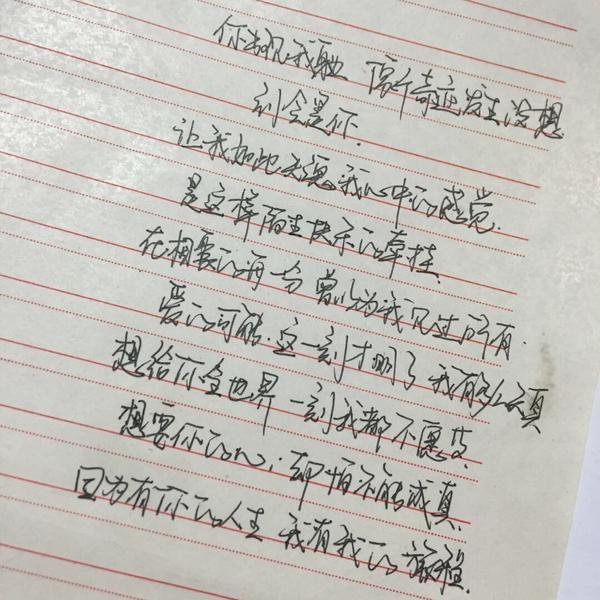 你出现我身边 像个奇迹发生没想
到会是你.
让我如此失魂.我心中的感觉.
是这样陌生快乐的牵挂.
在相聚的每一分 曾以为我见过所有.
爱的可能.这一刻才明了 我有多么认真
想给你全世界 一刻我都不愿等.
想要你的心;却怕不能成真.
因为有你的人生 我有我的旅程.